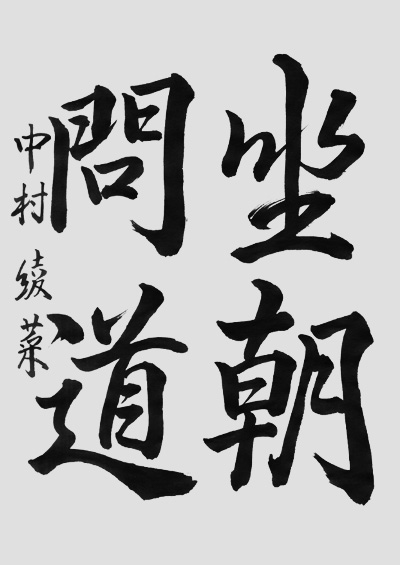 坐朝
問道
中村綾菜